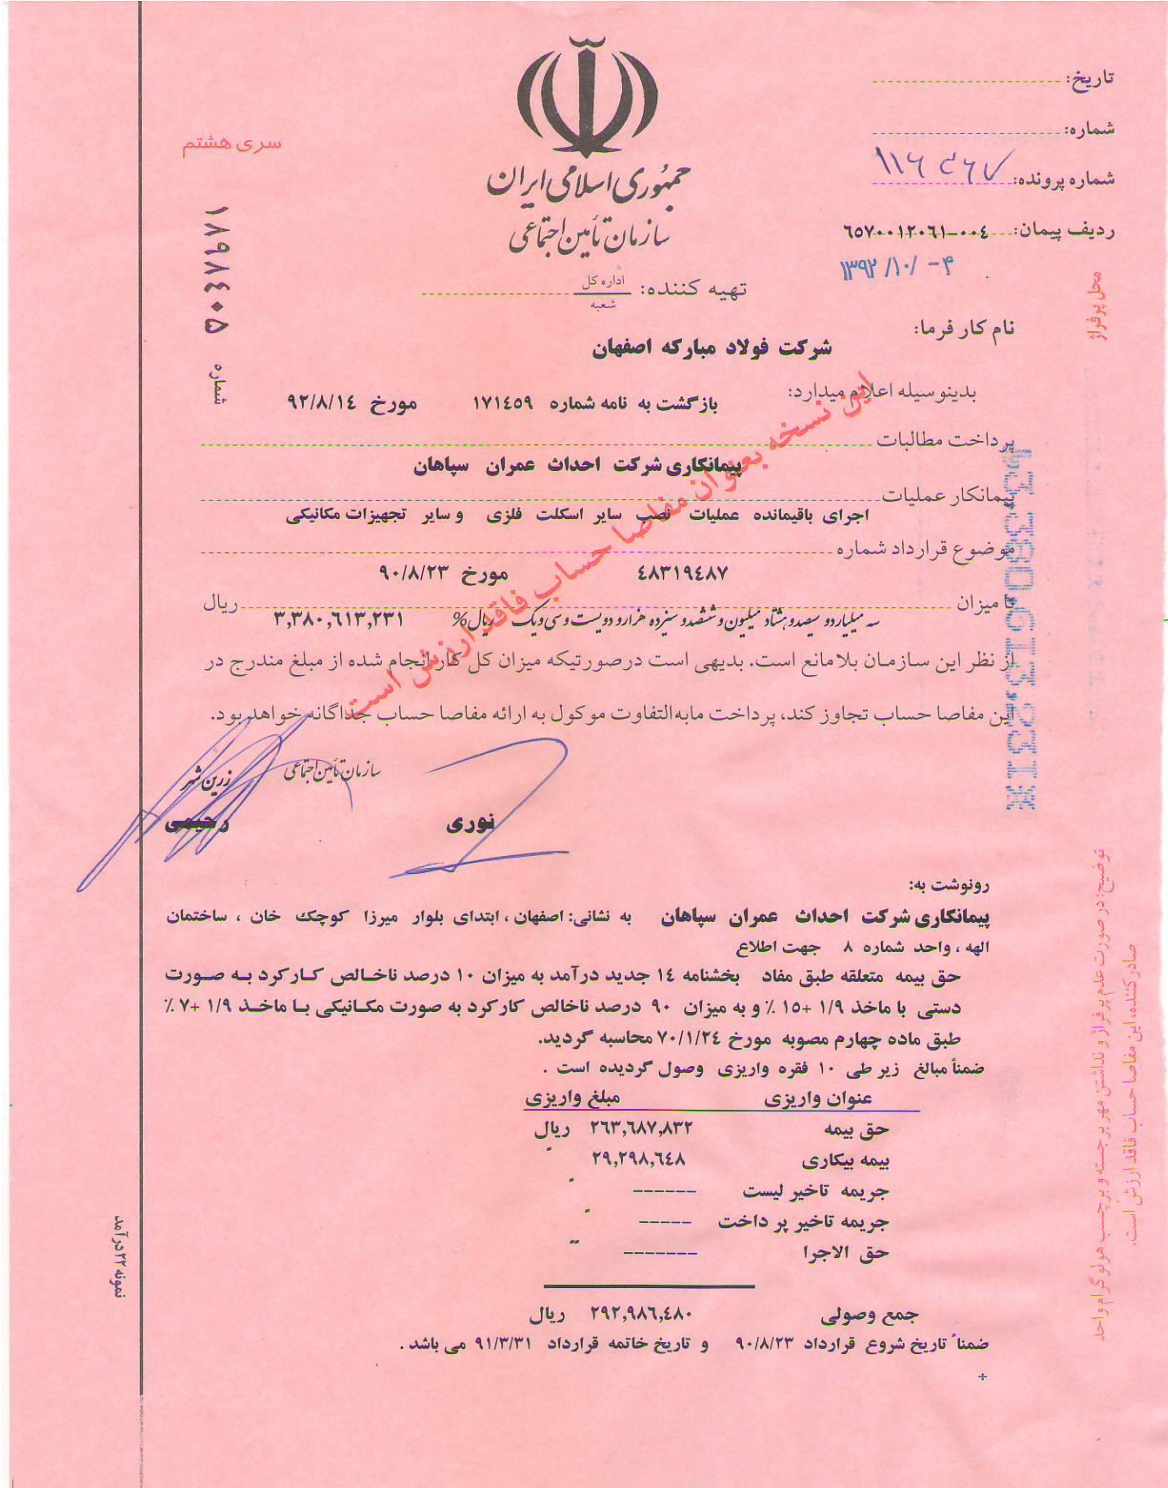 تاریخ:
شماره:
شماره پرونده:
ردیف پیمان: ۶۵۷۰۰۱۲۰۶۱-۰۰۴
۱۳۹۲/۱۰/-۴
سری هشتم
۱۸۹۸۴۰۵ شماره
جمهوری اسلامی ایران
سازمان تأمین اجتماعی
تهیه کننده: اداره کل
شعبه
نام کار فرما:
شرکت فولاد مبارکه اصفهان
بدینوسیله اعلام میدارد: بازگشت به نامه شماره ۱۷۱۴۵۹ مورخ ۹۲/۸/۱۴
پرداخت مطالبات
پیمانکاری شرکت احداث عمران سپاهان
پیمانکار عملیات
اجرای باقیمانده عملیات نصب سایر اسکلت فلزی و سایر تجهیزات مکانیکی
موضوع قرارداد شماره
۴۸۳۱۹۴۸۷ مورخ ۹۰/۸/۲۳
تا میزان ریال
سه میلیارد و سیصد و هشتاد میلیون و ششصد و سیزده هزار و دویست و سی و یک ریال% ۳,۳۸۰,۶۱۳,۲۳۱
از نظر این سازمان بلامانع است. بدیهی است درصورتیکه میزان کل کار انجام شده از مبلغ مندرج در
این مفاصا حساب تجاوز کند، پرداخت مابه‌التفاوت موکول به ارائه مفاصا حساب جداگانه خواهد بود.
این نسخه بعنوان مفاصا حساب فاقد ارزش است
سازمان تأمین اجتماعی زرین شهر
نوری رحیمی
رونوشت به:
پیمانکاری شرکت احداث عمران سپاهان به نشانی: اصفهان ، ابتدای بلوار میرزا کوچک خان ، ساختمان
الهه ، واحد شماره ۸ جهت اطلاع
حق بیمه متعلقه طبق مفاد بخشنامه ۱۴ جدید درآمد به میزان ۱۰ درصد ناخالص کارکرد به صورت
دستی با ماخذ ۱/۹ +۱۵ ٪ و به میزان ۹۰ درصد ناخالص کارکرد به صورت مکانیکی با ماخذ ۱/۹ +۷ ٪
طبق ماده چهارم مصوبه مورخ ۷۰/۱/۲۴ محاسبه گردید.
ضمناً مبالغ زیر طی ۱۰ فقره واریزی وصول گردیده است .
عنوان واریزی مبلغ واریزی
حق بیمه ۲۶۳,۶۸۷,۸۳۲ ریال
بیمه بیکاری ۲۹,۲۹۸,۶۴۸ "
جریمه تاخیر لیست ------ "
جریمه تاخیر پرداخت ----- "
حق الاجرا ------- "
جمع وصولی ۲۹۲,۹۸۶,۴۸۰ ریال
ضمناً تاریخ شروع قرارداد ۹۰/۸/۲۳ و تاریخ خاتمه قرارداد ۹۱/۳/۳۱ می باشد .
+
محل پرفراژ
توضیح: در صورت عدم پرفراژ و نداشتن مهر برجسته و برچسب هولوگرام واحد
صادرکننده، این مفاصا حساب فاقد ارزش است.
نمونه ۲۲ درآمد